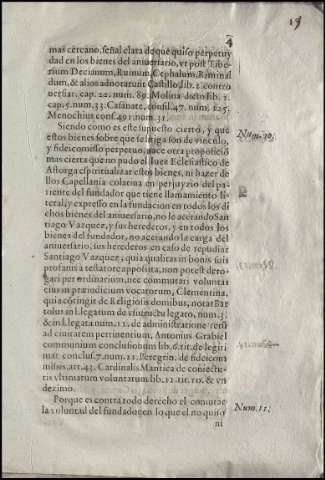 15
4
mas cercano, señal clara de que quiso perpetuy
dad en los bienes del aniuersario, et post Tibe
rium Decianum, Ruinum, Cephalum, Riminal
dum, & alios adocarunt Castillo lib. 2. contro
uersiar. cap. 22. num. 89. Molina dicto lib. 2.
cap. 5. num. 33. Casanate, consil. 47. num. 125.
Menochius conf. 491. num. 31.
Siendo como es este supuesto cierto, y que
estos bienes sobre que se litiga son de vinculo,
y fideicomisso perpetuo, nace otra proposició
mas cierta que no pudo el Iuez Eclesiastico de
Astorga espiritualizar estos bienes, ni hazer de
llos Capellania colatiua en perjuyzio del pa
riente del fundador que tiene llamamiento li
teral, y expresso en la fundacion en todos los di
chos bienes del aniuersario, no lo acetando San
tiago Vazquez, y sus herederos, y en todos los
bienes del fundador, no acetando la carga del
aniuersario, sus herederos en caso de repudiar
Santiago Vazquez; quia qualitas in bonis suis
profanis a testatore apposita, non potest dero-
gari per ordinarium, nec commutari voluntas
eius in præiudicium vocatorum, Clementina,
quia cótingit de Religiosis domibus, notat Bar
tolus in l. legatum de vsufructu legato, num. 3.
& in l. legata num. 12. de administratione rerú
ad ciuitatem pertinentium, Antonius Grabiel
communium conclusionum lib. 6. tit. de legiti
mat. conclus. 7. num. 21. Peregrin. de fideicom
missis, art. 43. Cardinalis Mantica de coniectu-
ris vltimarum voluntatum lib. 12. tit. 10. & vn
dezimo.
Porque es contra todo derecho el comutar
la voluntad del fundador en lo que el no quiso
ni
Num. 10.
Num. 11.